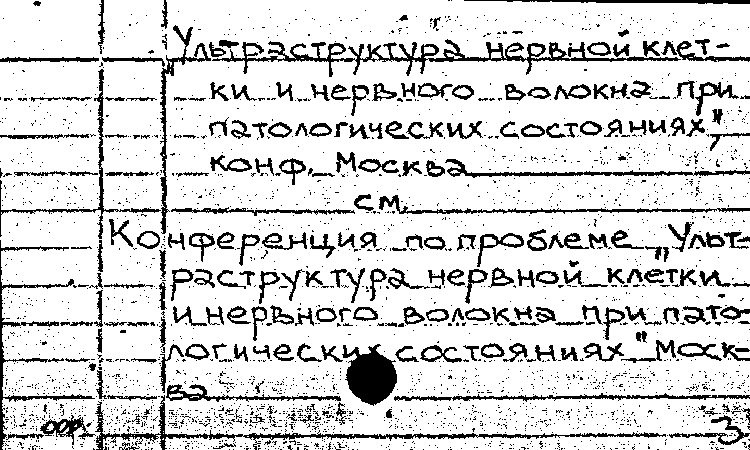 „Ультраструктура нервной клет-
ки и нервного волокна при
патологических состояниях",
конф. Москва
см.
Конференция по проблеме „Ульт-
раструктура нервной клетки
и нервного волокна при пато-
логических состояниях" Моск-
ва
3